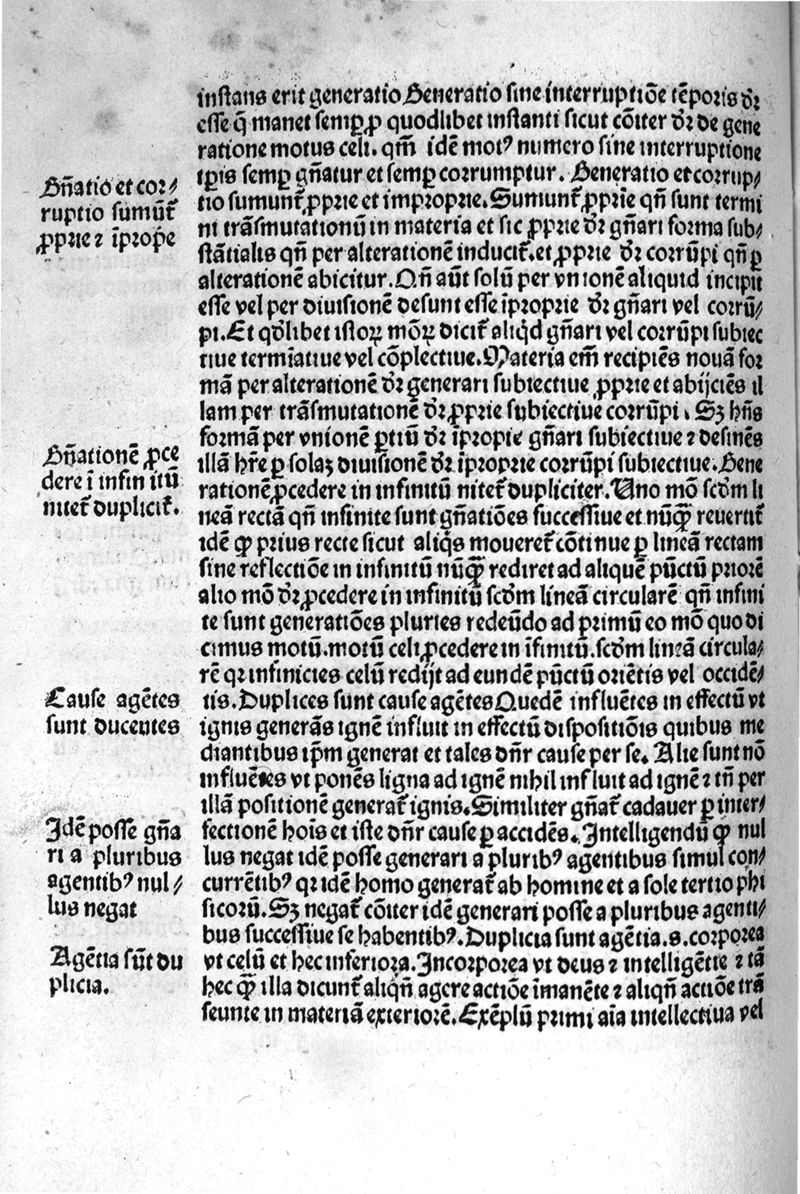 instans erit generatio Generatio sine interruptiōe tēporis dr̄
esse q̄ manet semꝑ ꝓ quodlibet instanti sicut cōiter dr̄ de gene
ratione motus celi. qm̄ idē motꝰ numero sine interruptione
tꝑis semꝑ gn̄atur et semꝑ corrumptur. Generatio et corrup⸗
tio sumunt᷑ ꝓprie et improprie. Sumunt᷑ ꝓprie qn̄ sunt termi
ni trāsmutationū in materia et sic ꝓprie dr̄ gn̄ari forma sub⸗
stātialis qn̄ per alterationē inducit᷑. et ꝓprie dr̄ corrūpi qn̄ ꝑ
alterationē abicitur. Qn̄ aūt solū per vnionē aliquid incipit
esse vel per diuisionē desunt esse īproprie dr̄ gn̄ari vel corrū⸗
pi. Et qd̄libet istoꝝ moꝝ dicit᷑ aliqd gn̄ari vel corrūpi subiec
tiue termīatiue vel cōplectiue. Materia em̄ recipiēs nouā for
mā per alterationē dr̄ generari subiectiue ꝓprie et abijciēs il
lam per trāsmutationē dr̄ ꝓprie subiectiue corrūpi. Sꝫ hn̄s
formā per vnionē ꝑtiū dr̄ īpropie gn̄ari subiectiue ⁊ desinēs
illā hr̄e ꝑ solaꝫ diuisionē dr̄ īproprie corrūpi subiectiue. Gene
rationē ꝓcedere in infinitū nitet᷑ dupliciter. Uno mō scd̄m li
neā rectā qn̄ infinite sunt gn̄atiōes successiue et nūꝙ̄ reuertit᷑
idē ꝙ prius recte sicut aliq̄s moueret᷑ cōtinue ꝑ lineā rectam
sine reflectiōe in infinitū nūꝙ̄ rediret ad aliquē pūctū priorē
alio mō dr̄ ꝓcedere in infinitū scd̄m lineā circularē qn̄ infini
te sunt generatiōes pluries redeūdo ad primū eo mō quo di
cimus motū. motū celi ꝓcedere in īfinitū. scd̄m lineā circula⸗
rē qr infinicies celū redijt ad eundē pūctū oriētis vel occidē⸗
tis. Duplices sunt cause agētes Quedē influētes in effectū vt
ignis generās ignē influit in effectū dispositiōis quibus me
diantibus ip̄m generat et tales dn̄r cause per se. Alie sunt nō
influētes vt ponēs ligna ad ignē nihil influit ad ignē ⁊ tn̄ per
illā positionē generat᷑ ignis. Similiter gn̄at᷑ cadauer ꝑ inter⸗
fectionē hoīs et iste dn̄r cause ꝑ accidēs. Intelligendū ꝙ nul
lus negat idē posse generari a pluribꝰ agentibus simul con⸗
currētibꝰ qr idē homo generat᷑ ab homine et a sole tertio phi
sicorū. Sꝫ negat᷑ cōiter idē generari posse a pluribus agenti⸗
bus successiue se habentibꝰ. Duplicia sunt agētia. s. corporea
vt celū et hec inferiora. Incorporea vt deus ⁊ intelligētie ⁊ tā
hec ꝙ̄ illa dicunt᷑ aliqn̄ agere actiōe īmanēte ⁊ aliqn̄ actiōe trā
seunte in materiā exteriorē. Exēplū primi aīa intellectiua vel
Gn̄atio et cor⸗
ruptio sumūt᷑
ꝓprie ⁊ īprop̄e
Gn̄ationē ꝓce
dere ī infinitū
nitet᷑ duplicit᷑.
Cause agētes
sunt ducentes
Idē posse gn̄a
ri a pluribus
agentibꝰ nul⸗
lus negat
Agētia sūt du
plicia.